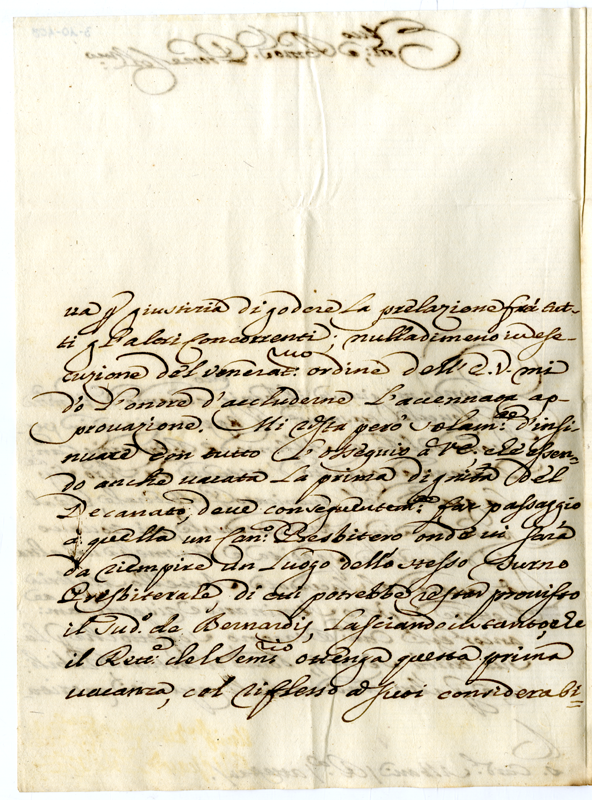 va p giustizia di godere la prelazione frà tut-
ti gl'altri Concorrenti; nulladimeno in ese-
cuzione del venerat.mo ordine dell' E. V. mi
dò l'onore d'accluderne l'accennata ap-
provazione. Mi resta però solam.te d'insi-
nuare con tutto l'ossequio à V.E. che essen-
do anche vacata la prima dignità del
Decanato, deve conseguentem.te far passaggio
à quella un Can.co Presbitero onde vi sarà
da riempire un luogo dello stesso Turno
Presbiterale, di cui potrebbe restar provisto
il Sud.o de Bernardis, lasciando in tanto, che
il Rett.e del Sem.rio ottenga questa prima
vacanza, col riflesso à suoi considerabi=